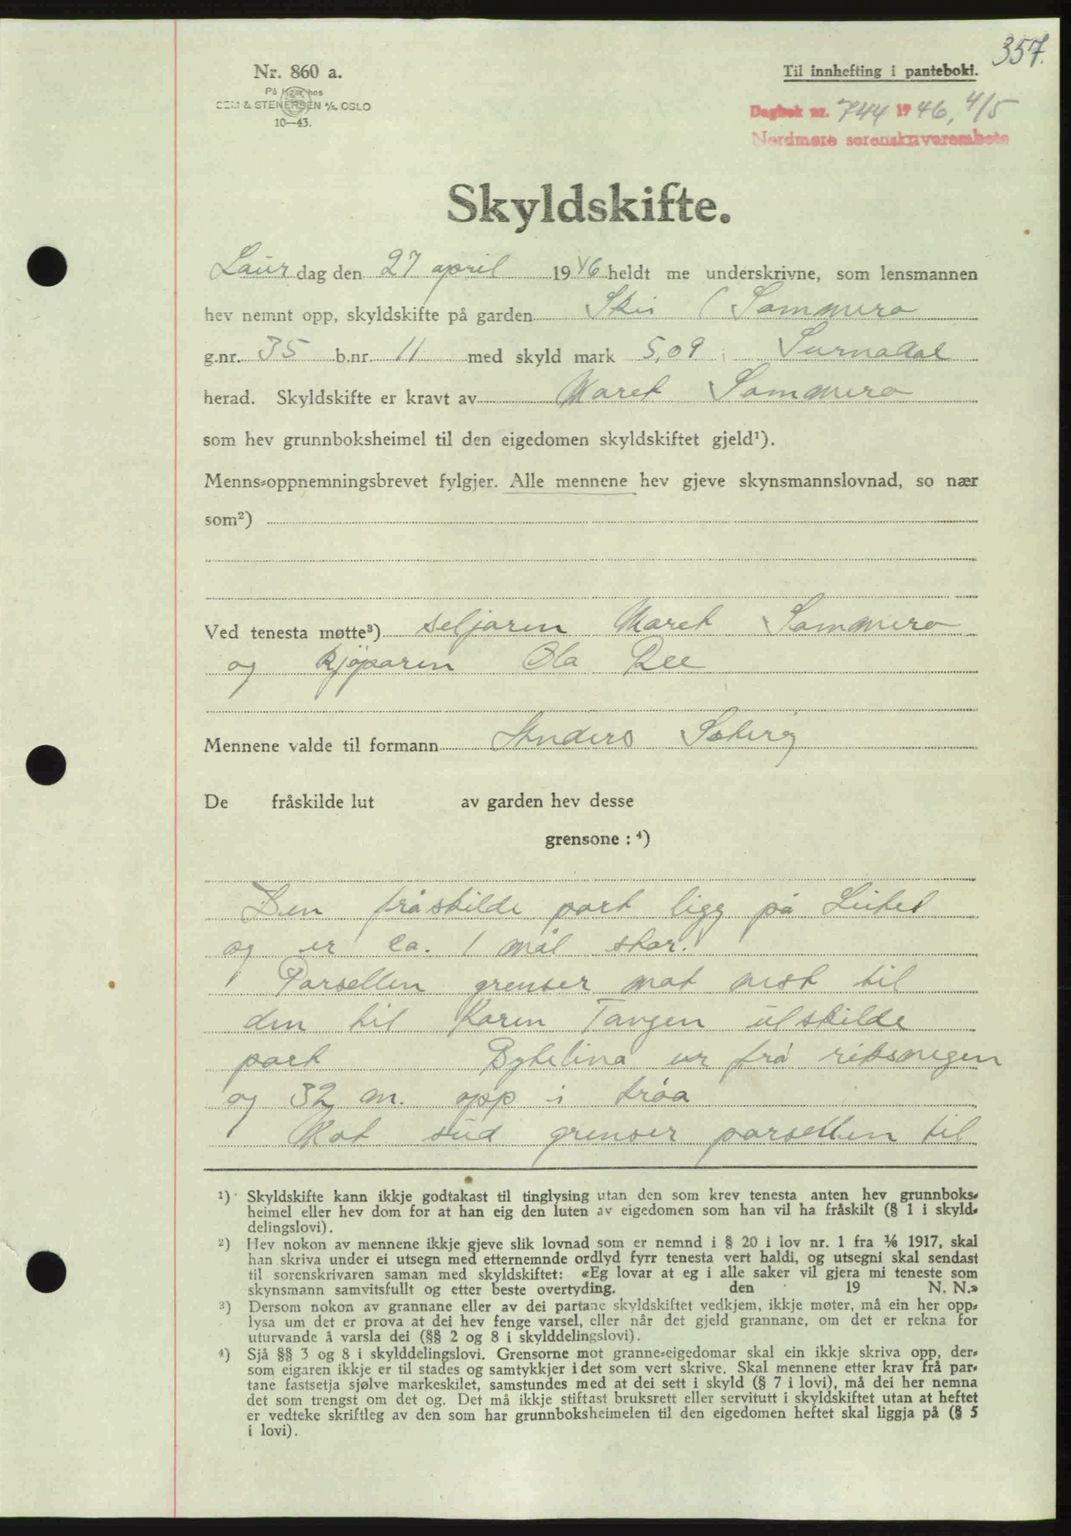 357.
Nr. 860 a.
Til innhefting i panteboki.
På lager hos
SEM & STENERSEN A/S, OSLO
10—43.
Dagbok nr. 744 1946, 4/5
Nordmøre sorenskriverembete
Skyldskifte.
Laurdag den 27 april 1946 heldt me underskrivne, som lensmannen
hev nemnt opp, skyldskifte på garden Skei ( Sommero
g.nr. 35 b.nr. 11 med skyld mark 5,09 i Surnadal
herad. Skyldskifte er kravt av Maret Sommero
som hev grunnboksheimel til den eigedomen skyldskiftet gjeld¹).
Menns-oppnemningsbrevet fylgjer. Alle mennene hev gjeve skynsmannslovnad, so nær
som²)
Ved tenesta møtte³) seljaren Maret Sommero
og kjöparen Ola Ree
Mennene valde til formann Anders
De fråskilde lut av garden hev desse
grensone : ⁴)
Den fråskilde part ligg på
og er ca. 1 mål stor.
Parsellen grenser mot nest til
den til Karen Tangen utskilde
part Bytelina er frå
og 32 m. opp i tróa
Mot süd grenser parsellen til
¹) Skyldskifte kann ikkje godtakast til tinglysing utan den som krev tenesta anten hev grunnboks-
heimel eller hev dom for at han eig den luten av eigedomen som han vil ha fråskilt (§ 1 i skyld-
delingslovi).
²) Hev nokon av mennene ikkje gjeve slik lovnad som er nemnd i § 20 i lov nr. 1 fra ⅙ 1917, skal
han skriva under ei utsegn med etternemnde ordlyd fyrr tenesta vert haldi, og utsegni skal sendast
til sorenskrivaren saman med skyldskiftet: «Eg lovar at eg i alle saker vil gjera mi teneste som
skynsmann samvitsfullt og etter beste overtyding. den 19 N. N.»
³) Dersom nokon av grannane eller av dei partane skyldskiftet vedkjem, ikkje møter, må ein her opp-
lysa um det er prova at dei hev fenge varsel, eller når det gjeld grannane, om det er rekna for
uturvande å varsla dei (§§ 2 og 8 i skylddelingslovi).
⁴) Sjå §§ 3 og 8 i skylddelingslovi. Grensorne mot granne-eigedomar skal ein ikkje skriva opp, der-
som eigaren ikkje er til stades og samtykkjer i det som vert skrive. Skal mennene etter krav frå par-
tane fastsetja sjølve markeskilet, samstundes med at dei sett i skyld (§ 7 i lovi), må dei her nemna
det som trengst om det og. Det må ikkje stiftast bruksrett eller servitutt i skyldskiftet utan at heftet
er vedteke skriftleg av den som har grunnboksheimelen til den eigedomen heftet skal liggja på (§ 5
i lovi).